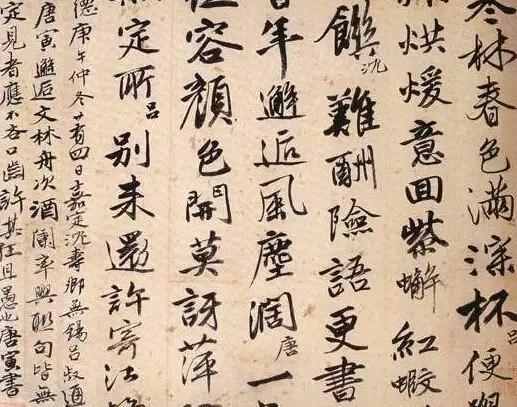 林春色滿深杯呂便
烘煖意回紫蠏紅蝦
饌沈難酬險語更書
年邂逅風塵闊唐一
容顏色開莫訝萍
定所呂别来還許寄江
德庚午仲冬廿有四日嘉定沈壽卿無錫呂叔通
唐寅邂逅文林舟次酒闌率興聯句皆無
定見者應不吝口齒許其狂且愚也唐寅書